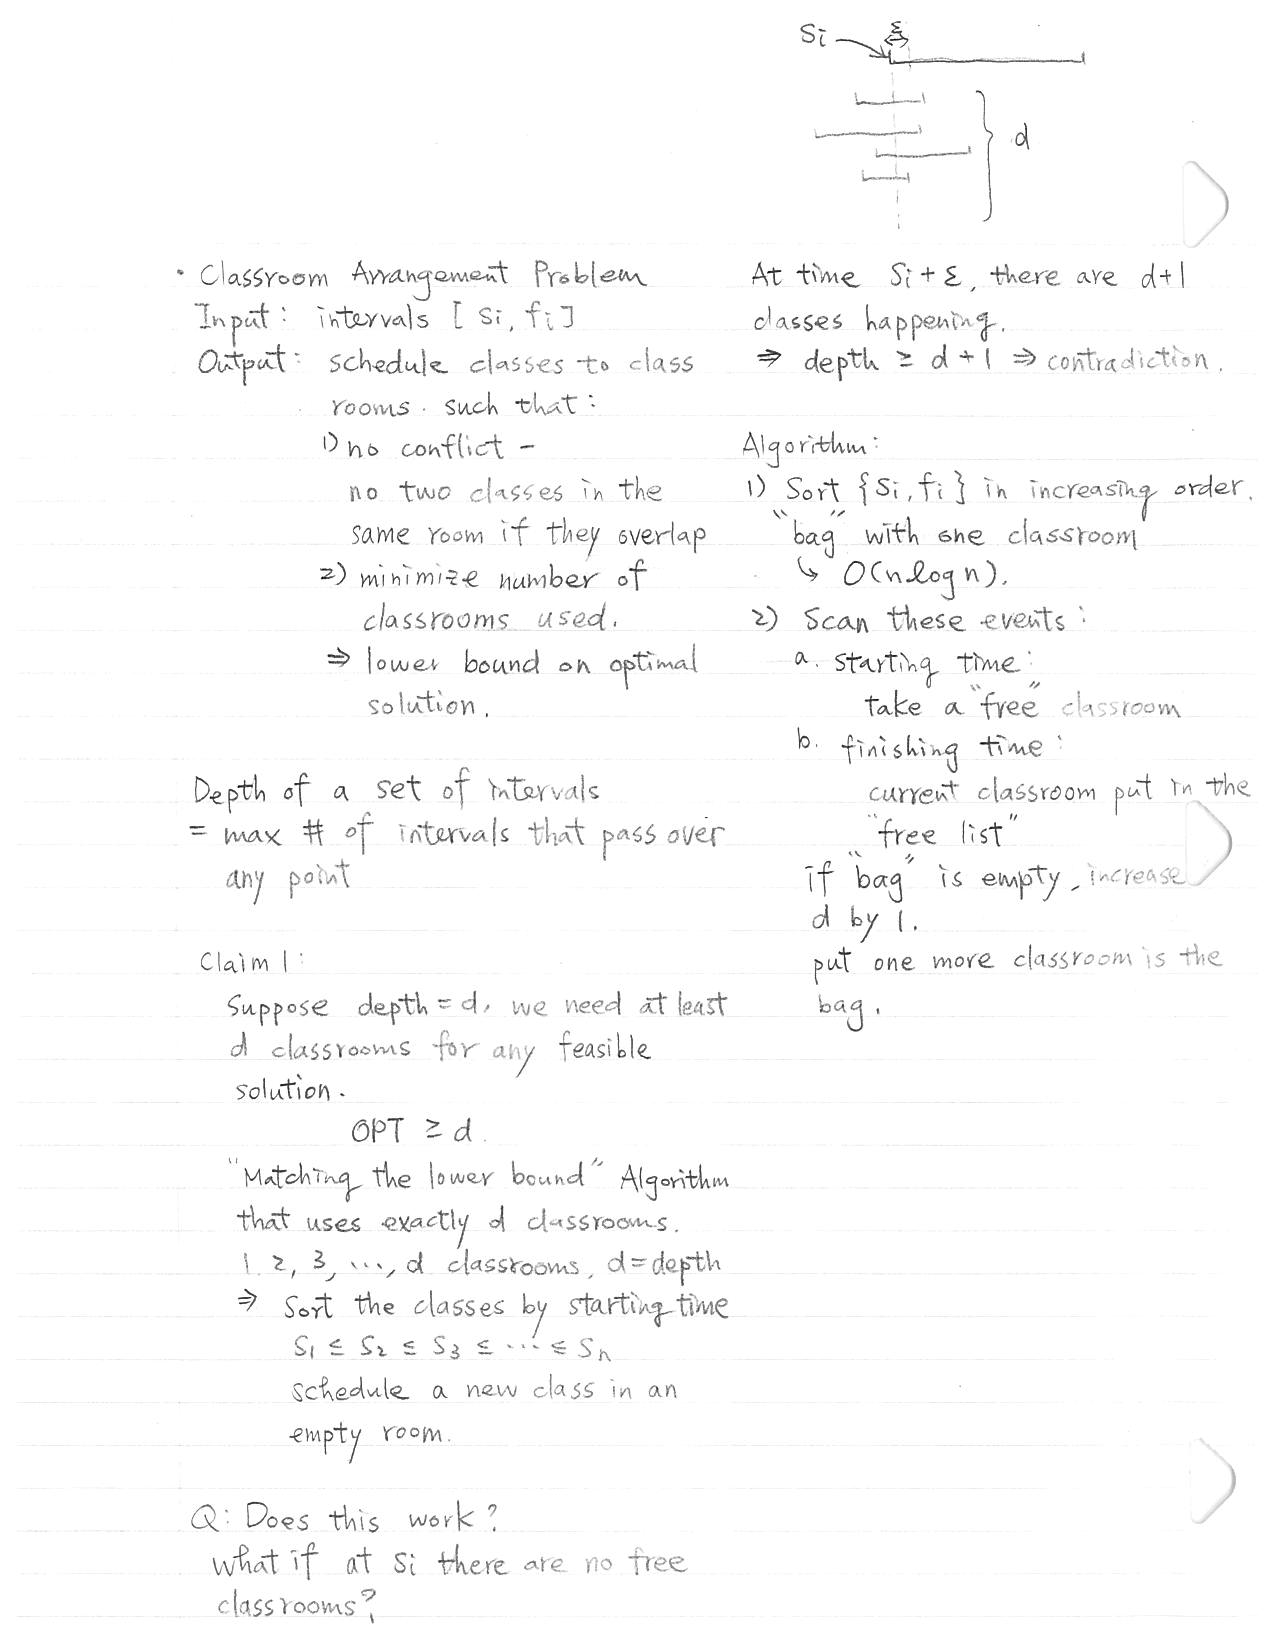 • Classroom Arrangement Problem
Input: intervals [si, fi]
Output: schedule classes to class
rooms. such that:
1) no conflict -
no two classes in the
same room if they overlap
2) minimize number of
classrooms used.
⇒ lower bound on optimal
solution.
Depth of a set of intervals
= max # of intervals that pass over
any point
Claim 1:
Suppose depth = d, we need at least
d classrooms for any feasible
solution.
OPT ≥ d.
"Matching the lower bound" Algorithm
that uses exactly d classrooms.
1, 2, 3, ..., d classrooms, d = depth
⇒ Sort the classes by starting time
S1 ≤ S2 ≤ S3 ≤ ... ≤ Sn
schedule a new class in an
empty room.
Q: Does this work?
what if at si there are no free
classrooms?
Si
ε
d
At time Si + ε, there are d+1
classes happening.
⇒ depth ≥ d + 1 ⇒ contradiction.
Algorithm:
1) Sort {Si, fi} in increasing order.
"bag" with one classroom
↳ O(n log n).
2) Scan these events:
a. starting time:
take a "free" classroom
b. finishing time:
current classroom put in the
"free list"
if "bag" is empty, increase
d by 1.
put one more classroom is the
bag.